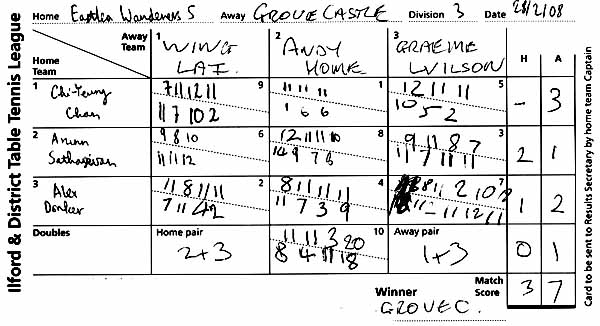 Ilford & District Table Tennis League
Home Eastern Wanderers 5 Away GROVE CASTLE Division 3 Date 28/2/08
Away Team Home Team 1 WING LAI 2 ANDY HOME 3 GRAEME WILSON H A
1 Chi-Teung Chan 9 1 5 - 3
7 11 12 11 11 11 11 12 11 11
11 7 10 2 1 6 6 10 5 2
2 Arunn 6 8 3 2 1
9 8 10 12 11 11 10 9 11 8 7
11 11 12 14 9 7 8 11 7 11 11
3 Alex 2 4 7 1 2
11 8 11 11 8 11 11 11
7 11 4 2 11 7 3 9
Doubles Home pair 2+3 10 Away pair 1+3 0 1
11 11 3 20
8 4 11 18
Winner GROVE C. Match Score 3 7
Card to be sent to Results Secretary by home team Captain